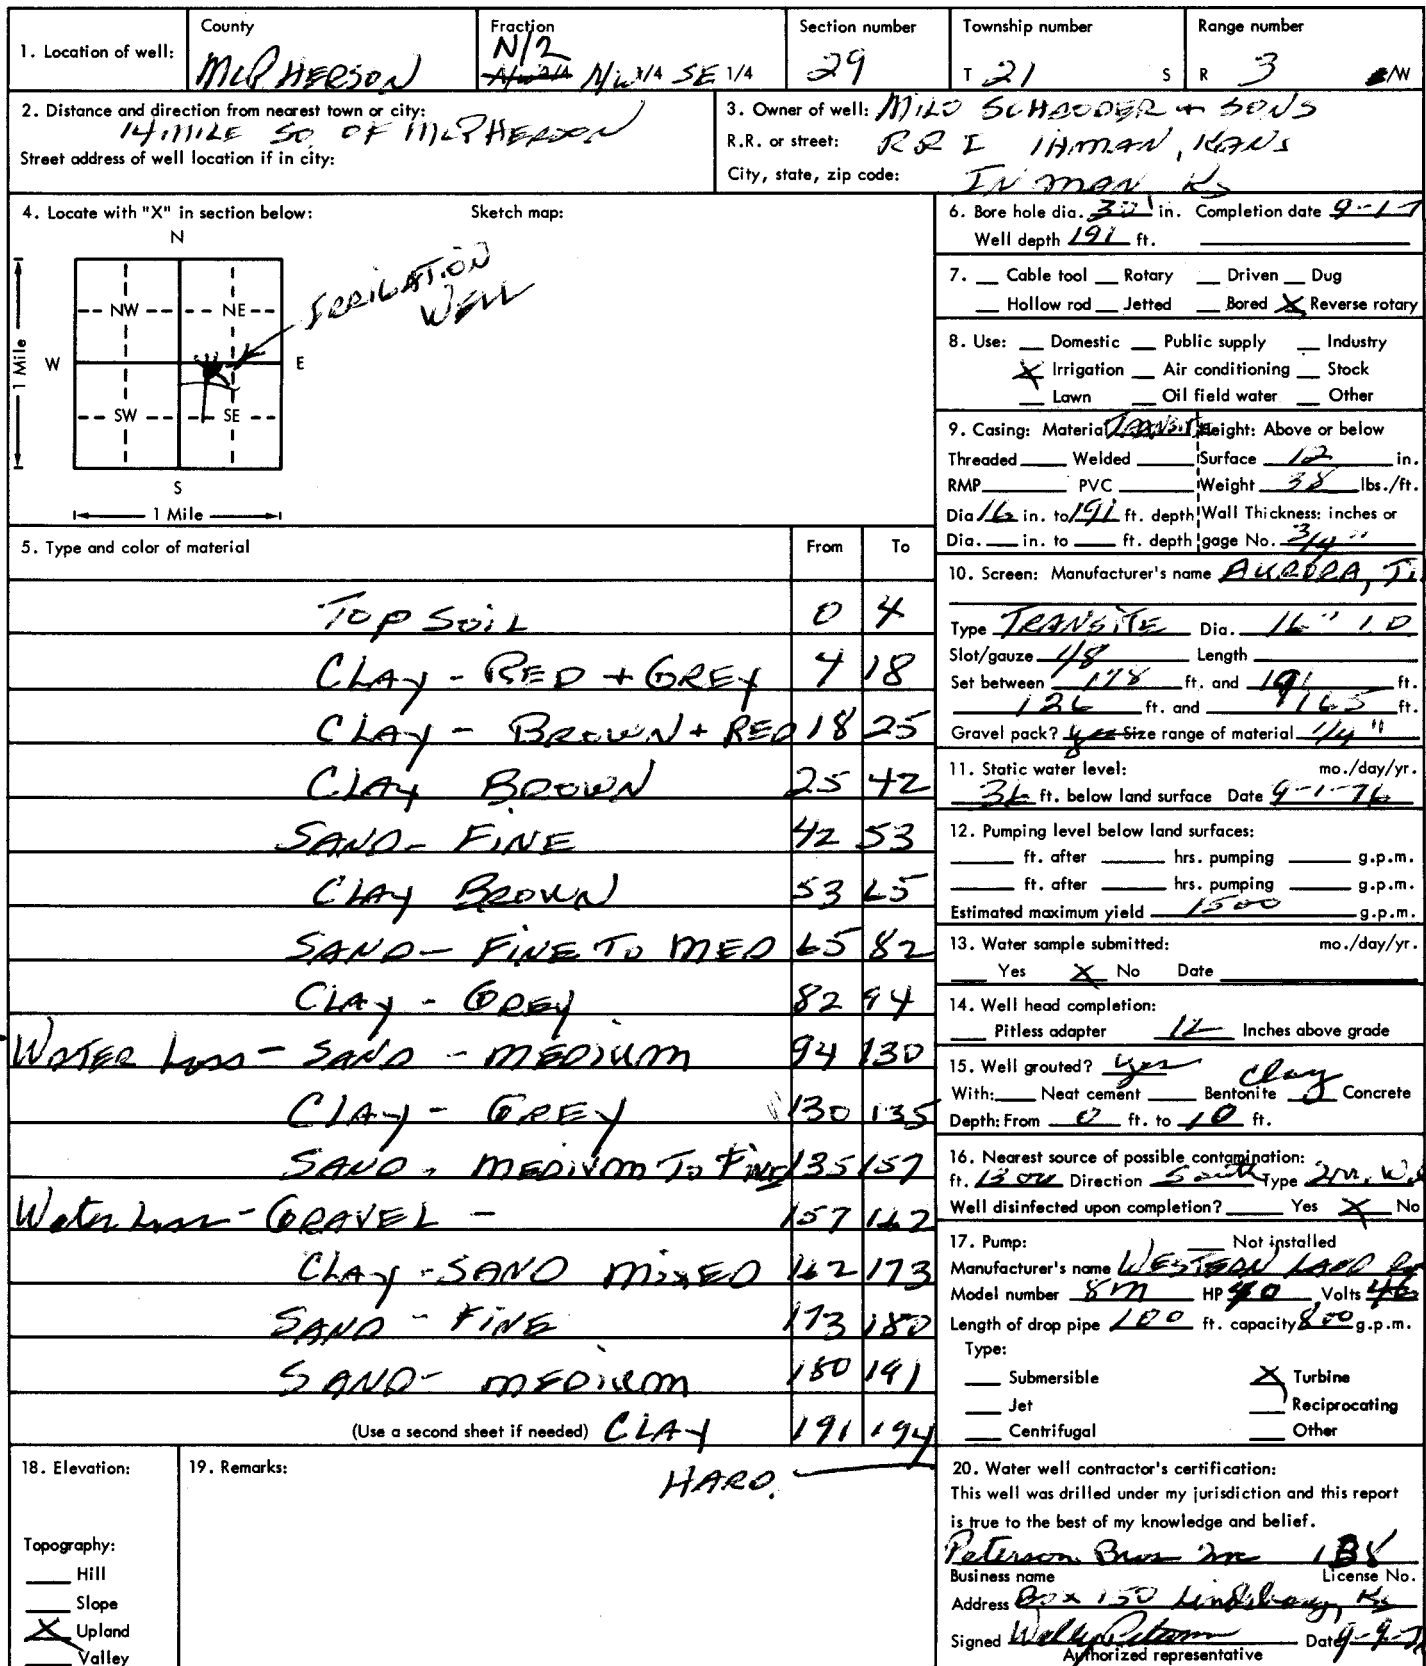 County Fraction Section number Township number Range number
1. Location of well: McPHERSON N/2 NW 1/4 SE 1/4 29 T 21 S R 3 E/W
2. Distance and direction from nearest town or city:
14 MILE SO OF McPHERSON
Street address of well location if in city:
3. Owner of well: MILO SCHRODER + SONS
R.R. or street: RR 1 INMAN, KANS
City, state, zip code: INMAN Ks
4. Locate with "X" in section below: Sketch map:
N
IRRIGATION
WELL
NW NE
W E
1 Mile
SW SE
S
1 Mile
5. Type and color of material From To
TOP SOIL 0 4
CLAY - RED + GREY 4 18
CLAY - BROWN + RED 18 25
CLAY BROWN 25 42
SAND - FINE 42 53
CLAY BROWN 53 65
SAND - FINE TO MED 65 82
CLAY - GREY 82 94
WATER Loss - SAND - MEDIUM 94 130
CLAY - GREY 130 135
SAND - MEDIUM TO FINE 135 157
Water Loss - GRAVEL - 157 162
CLAY - SAND MIXED 162 173
SAND - FINE 173 180
SAND - MEDIUM 180 191
(Use a second sheet if needed) CLAY 191 194
HARD.
6. Bore hole dia. 30 in. Completion date 9-1-7
Well depth 191 ft.
7. Cable tool Rotary Driven Dug
Hollow rod Jetted Bored X Reverse rotary
8. Use: Domestic Public supply Industry
X Irrigation Air conditioning Stock
Lawn Oil field water Other
9. Casing: Material TRANSIT Height: Above or below
Threaded Welded Surface 12 in.
RMP PVC Weight 38 lbs./ft.
Dia 16 in. to 191 ft. depth Wall Thickness: inches or
Dia. in. to ft. depth gage No. 3/4"
10. Screen: Manufacturer's name AURORA,
Type TRANSITE Dia. 16" I.D
Slot/gauze 1/8 Length
Set between 178 ft. and 191 ft.
126 ft. and 165 ft.
Gravel pack? yes Size range of material 1/4"
11. Static water level: mo./day/yr.
36 ft. below land surface Date 9-1-76
12. Pumping level below land surfaces:
ft. after hrs. pumping g.p.m.
ft. after hrs. pumping g.p.m.
Estimated maximum yield 1500 g.p.m.
13. Water sample submitted: mo./day/yr.
Yes X No Date
14. Well head completion:
Pitless adapter 12 Inches above grade
15. Well grouted? yes Clay
With: Neat cement Bentonite Concrete
Depth: From 0 ft. to 10 ft.
16. Nearest source of possible contamination:
ft. 1300 Direction South Type
Well disinfected upon completion? Yes X No
17. Pump: Not installed
Manufacturer's name WESTERN LAND
Model number 8M HP 40 Volts 46
Length of drop pipe 100 ft. capacity 800 g.p.m.
Type:
Submersible X Turbine
Jet Reciprocating
Centrifugal Other
18. Elevation: 19. Remarks:
Topography:
Hill
Slope
X Upland
Valley
20. Water well contractor's certification:
This well was drilled under my jurisdiction and this report
is true to the best of my knowledge and belief.
Peterson Bros Inc
Business name License No.
Address Box 150 Lindsborg, Ks
Signed Date 9-9-7
Authorized representative